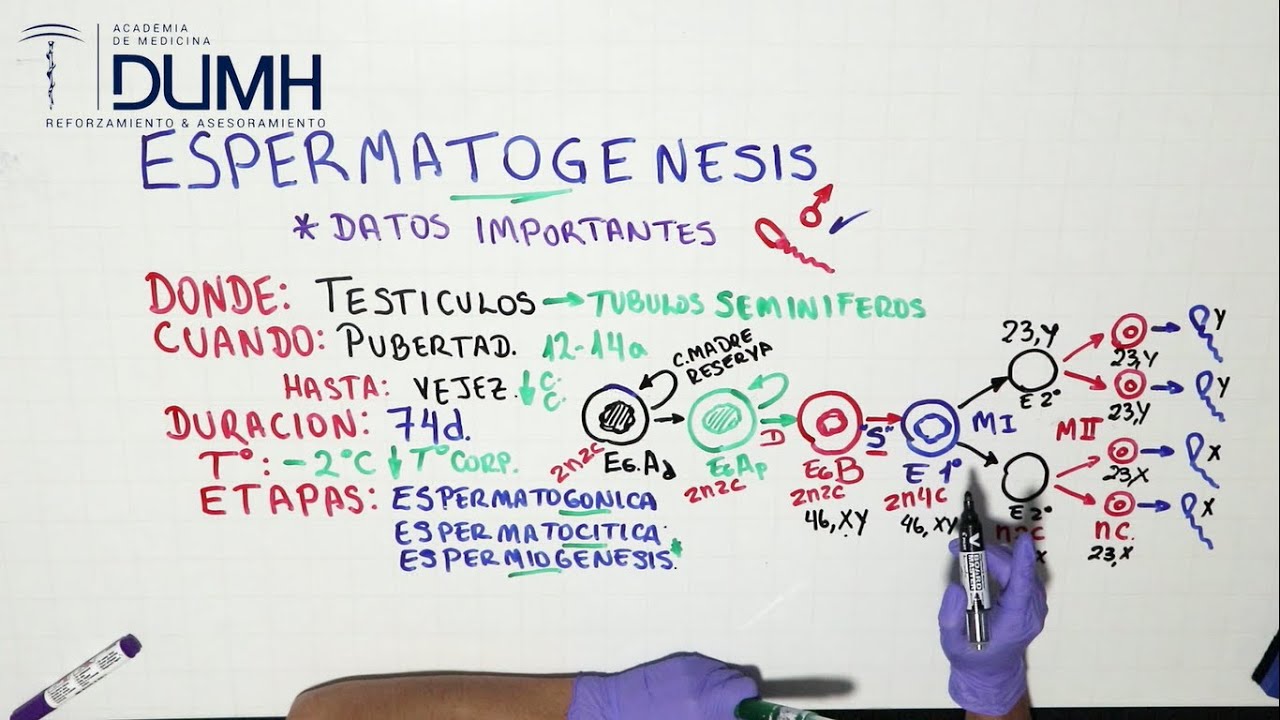 ACADEMIA
DE MEDICINA
DUMH
REFORZAMIENTO & ASESORAMIENTO
ESPERMATOGENESIS
* DATOS IMPORTANTES
DONDE: TESTICULOS → TUBULOS SEMINIFEROS
CUANDO: PUBERTAD. 12-14a
HASTA: VEJEZ. ↓ C. C.
DURACION: 74d.
T°: -2°C ↓ T° CORP.
ETAPAS: ESPERMATOGONICA
ESPERMATOCITICA
ESPERMIOGENESIS.*
C. MADRE
RESERVA
EG.Ad
2n2c
EGAp
2n2c
D
EGB
2n2c
46, XY
"S"
E 1°
2n4c
46, XY
MI
23,Y
E 2°
E 2°
MII
23,Y
23,Y
23,X
nc.
23,X
Y
Y
X
X